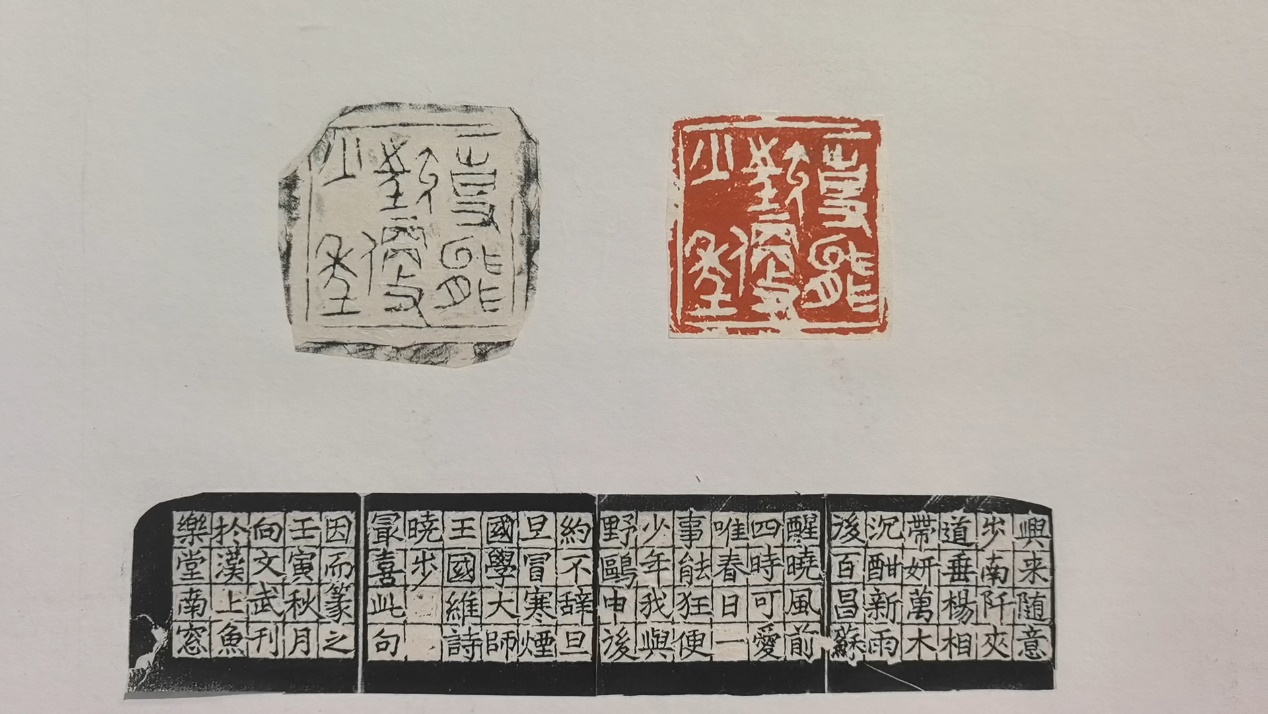 一事能
狂便
少年
一事能
狂便
少年
興来随意
步南阡夾
道垂楊相
帶妍萬木
沉酣新雨
後百昌蘇
醒曉風前
四時可愛
唯春日一
事能狂便
少年我與
野鷗申後
約不辞旦
旦冒寒煙
國學大師
王國維詩
曉步
冣喜此句
因而篆之
壬寅秋月
向文武刊
於漢上魚
樂堂南窓